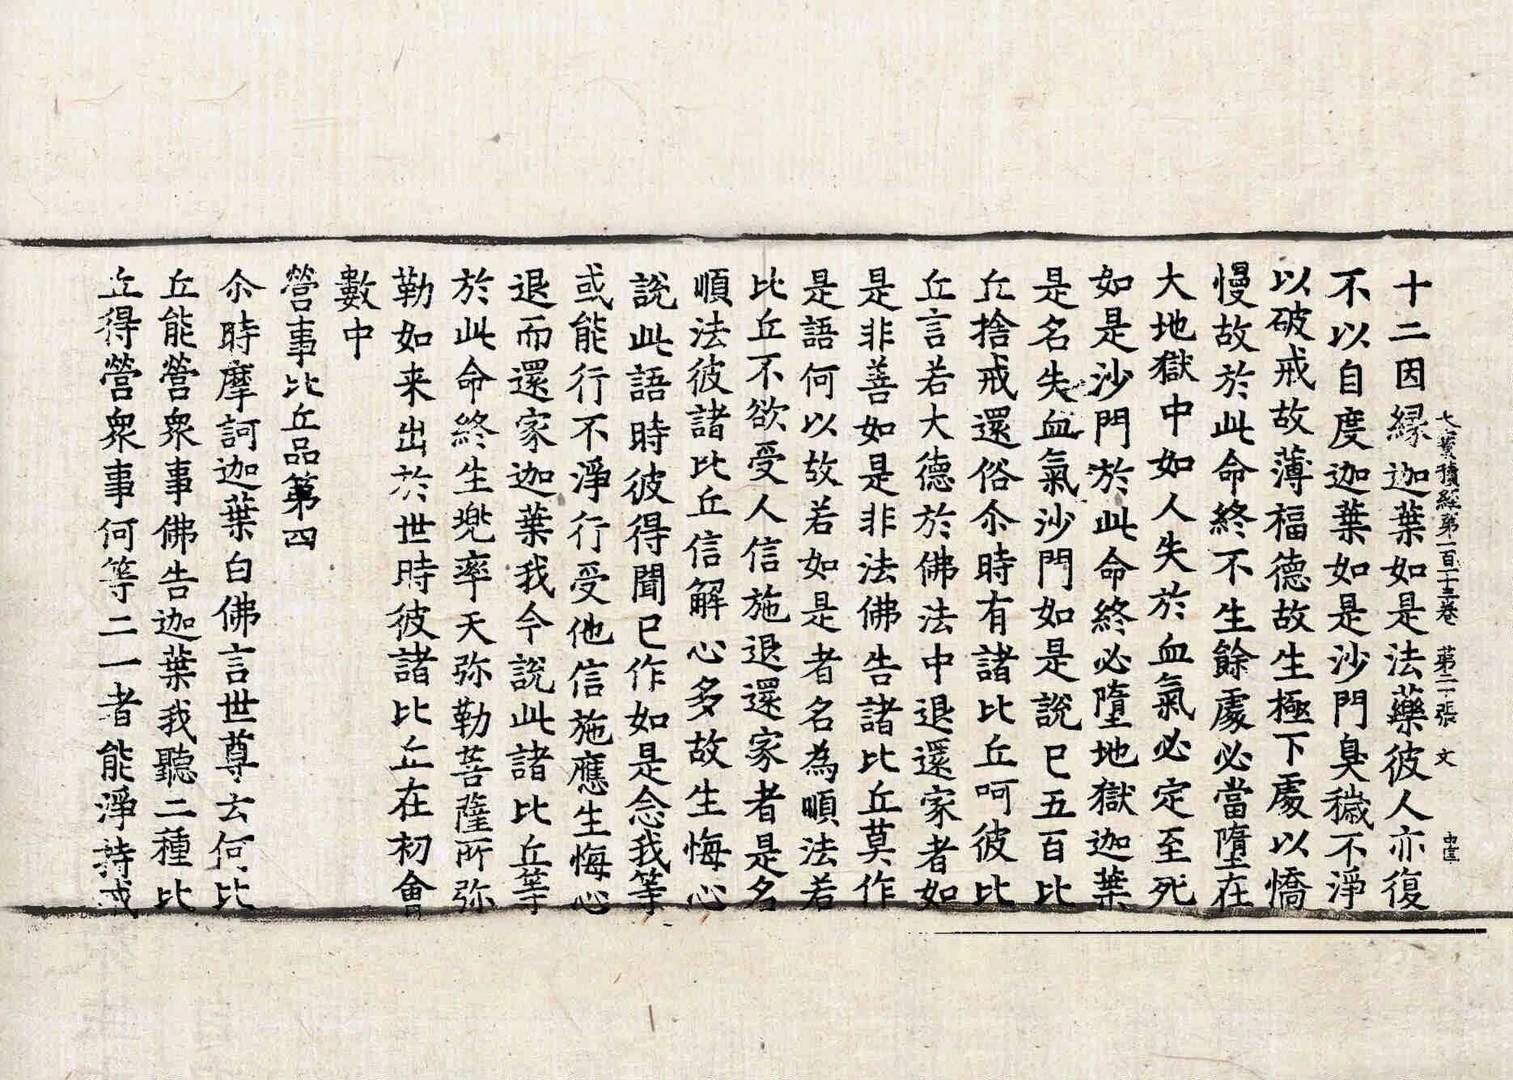 大寶積經第一百十三卷 第二十張 文
十二因緣迦葉如是法藥彼人亦復
不以自度迦葉如是沙門臭穢不淨
以破戒故薄福德故生極下處以憍
慢故於此命終不生餘處必當墮在
大地獄中如人失於血氣必定至死
如是沙門於此命終必墮地獄迦葉
是名失血氣沙門如是說已五百比
丘捨戒還俗尒時有諸比丘呵彼比
丘言若大德於佛法中退還家者如
是非善如是非法佛告諸比丘莫作
是語何以故若如是者名為順法若
比丘不欲受人信施退還家者是名
順法彼諸比丘信解心多故生悔心
說此語時彼得聞已作如是念我等
或能行不淨行受他信施應生悔心
退而還家迦葉我今說此諸比丘等
於此命終生兜率天弥勒菩薩所弥
勒如来出於世時彼諸比丘在初會
數中
營事比丘品第四
尒時摩訶迦葉白佛言世尊云何比
丘能營衆事佛告迦葉我聽二種比
丘得營衆事何等二一者能淨持戒